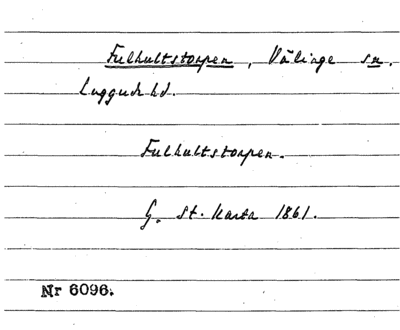 Fulhultstorpen, Välinge sn.
Luggude hd.
Fulhultstorpen.
G. st. karta 1861.
Nr 6096.